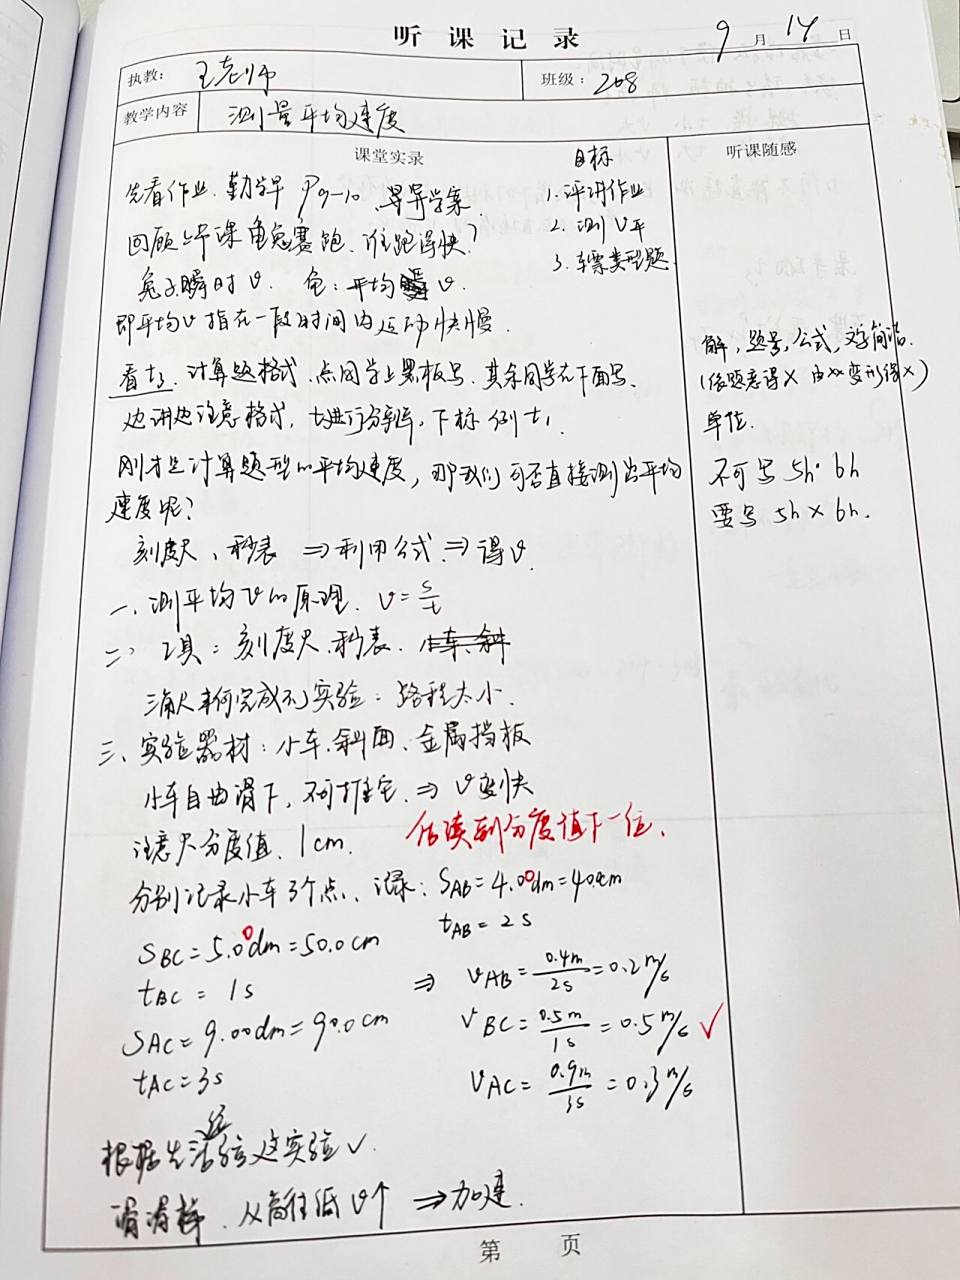 听课记录
9月14日
执教: 王老师
班级: 208
教学内容 测量平均速度
课堂实录
目标
听课随感
先看作业. 勤学早 P9-10. 导学案.
1. 评讲作业
回顾上节课龟兔赛跑. 谁跑得快?
2. 测V平
3. 车票类型题.
兔子瞬时v. 龟: 平均v.
即平均v指在一段时间内运动快慢.
看书. 计算题格式. 点同学上黑板写. 其余同学在下面写.
边讲边注意格式, 进行分析, 下标 例t1.
刚才是计算题型的平均速度, 那我们可否直接测出平均
速度呢?
刻度尺、秒表 ⇒ 利用公式 ⇒ 得v.
一、测平均v的原理. v=s/t
二、工具: 刻度尺、秒表. 小车、斜
三角尺完成不了实验: 路程太小.
三、实验器材: 小车、斜面、金属挡板
小车自由滑下, 不可推它. ⇒ v变快
注意尺分度值. 1cm.
估读到分度值下一位.
分别记录小车3个点、记录: SAB=4.00dm=40.0cm
tAB=2s
SBC=5.00dm=50.0cm
tBC=1s
⇒ vAB=0.4m/2s=0.2m/s
SAC=9.00dm=90.0cm
vBC=0.5m/1s=0.5m/s ✓
tAC=3s
vAC=0.9m/3s=0.3m/s
根据生活经验这实验✓.
滑滑梯. 从高往低v↑ ⇒加速.
解, 题号, 公式, 文字简洁.
(依题意得× 由xx变形得×)
单位.
不可写 5h·6h
要写 5h×6h.
第 页